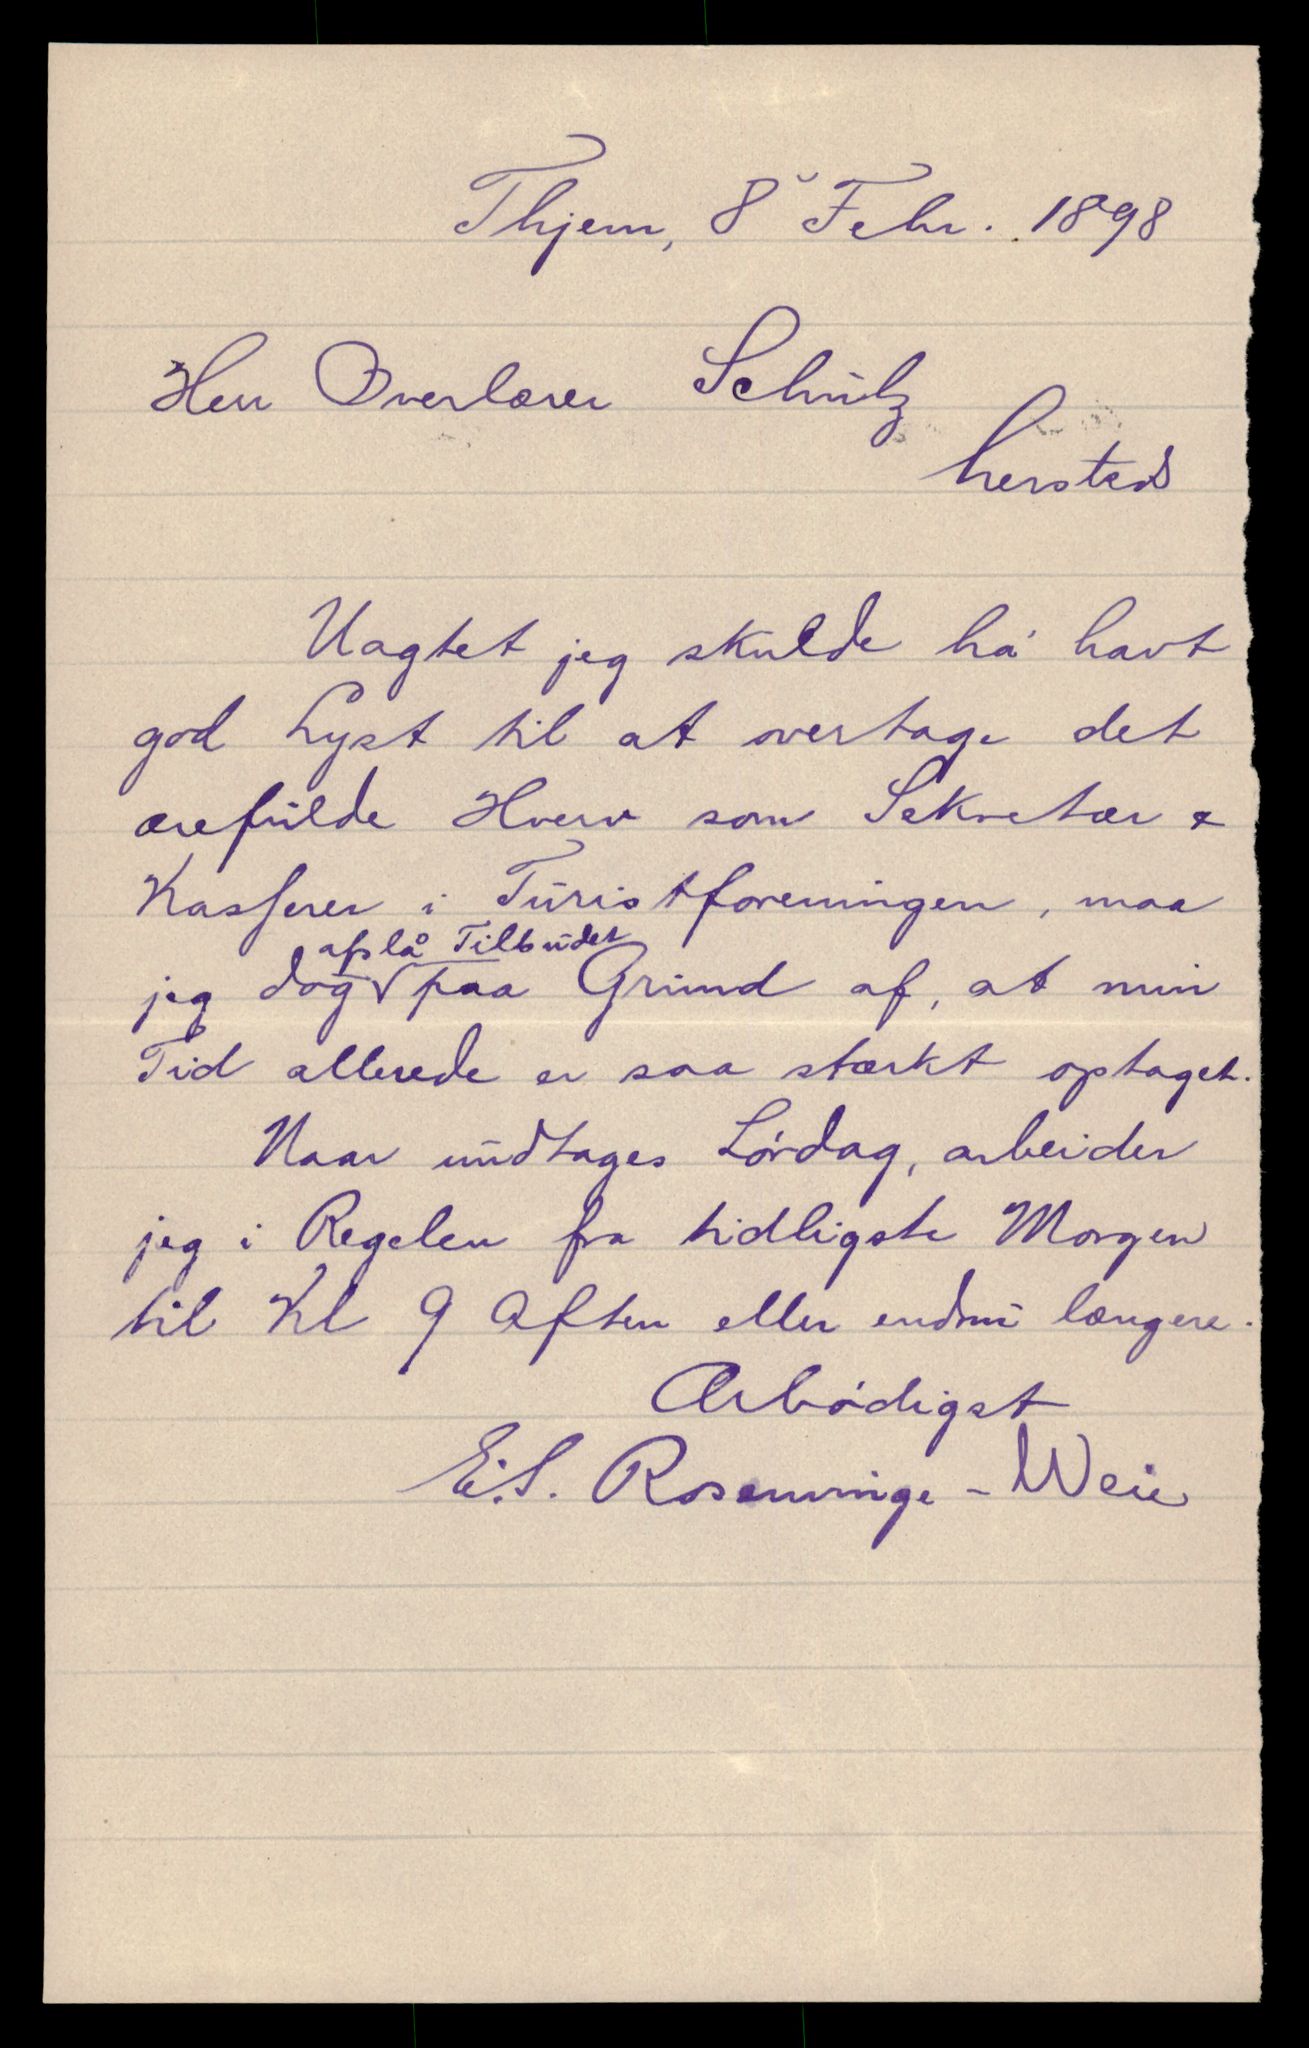 Thjem, 8 Febr. 1898
Herr Overlærer Schulz
hersteds
Uagtet jeg skulde há havt
god Lyst til at overtage det
ærefulde Hverv som Sekretær &
Kasserer i Turistforeningen, maa
jeg dog afslå Tilbudet paa Grund af, at min
Tid allerede er saa stærkt optaget.
Naar undtages Lørdag, arbeider
jeg i Regelen fra tidligste Morgen
til Kl 9 Aften eller endnu længere.
Ærbødigst
E. S. Rosenvinge - Weie